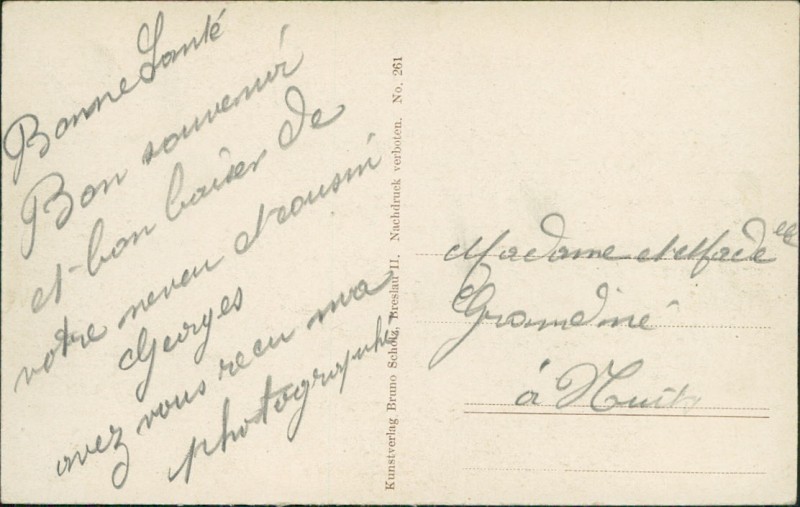 Bonne Santé
Bon souvenir
et bon baiser de
votre neveu et cousin
Georges
avez vous recu ma
photographie
Kunstverlag Bruno Scholz, Breslau II. Nachdruck verboten. No. 261
Madame et Made
à Nuits